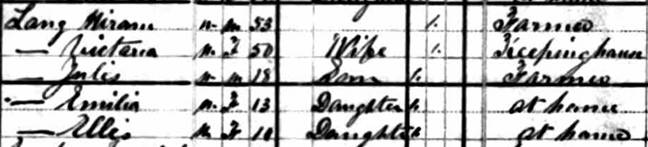 Lang Hiram w m 53 1. Farmer
— Victoria w F 50 Wife 1. Keeping house
— Julis w m 18 Son 1. Farmer
— Emilia w F 13 Daughter 1. at home
— Ellis w F 10 Daughter 1. at home